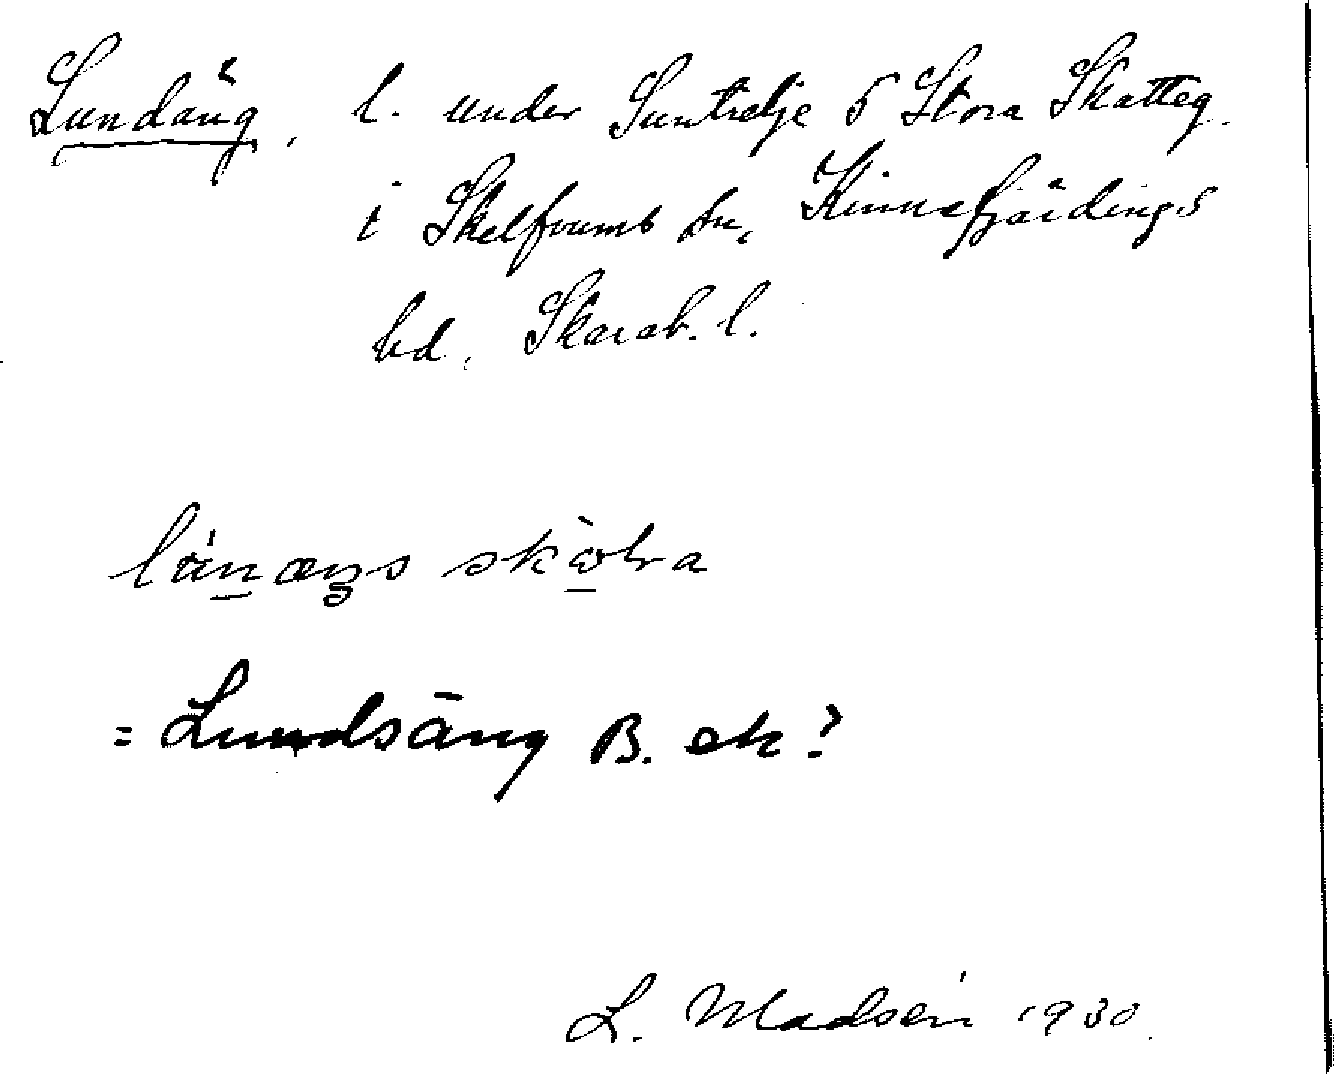 Lundäng, l. under Suntrelje 5 Stora Skatteg.
i Skelfvums sn, Kinnefjärdings
hd, Skarab. l.
= Lundsäng B. ek?
L. Madsén 1930.